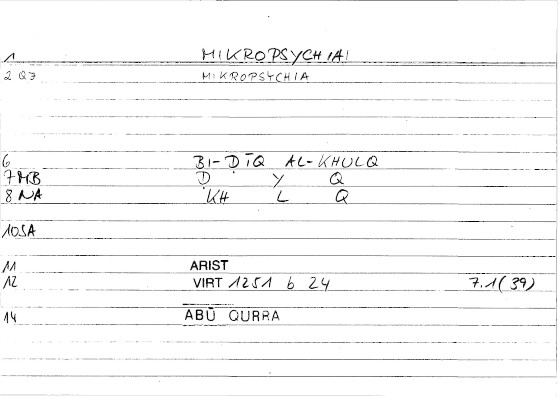 1 MIKROPSYCHIAI
2 Q3 MIKROPSYCHIA
6 BI-ḌĪQ AL-KHULQ
7 MB Ḍ Y Q
8 NA KH L Q
10 SA
11 ARIST
12 VIRT 1251 b 24 7.1(39)
14 ABŪ QURRA